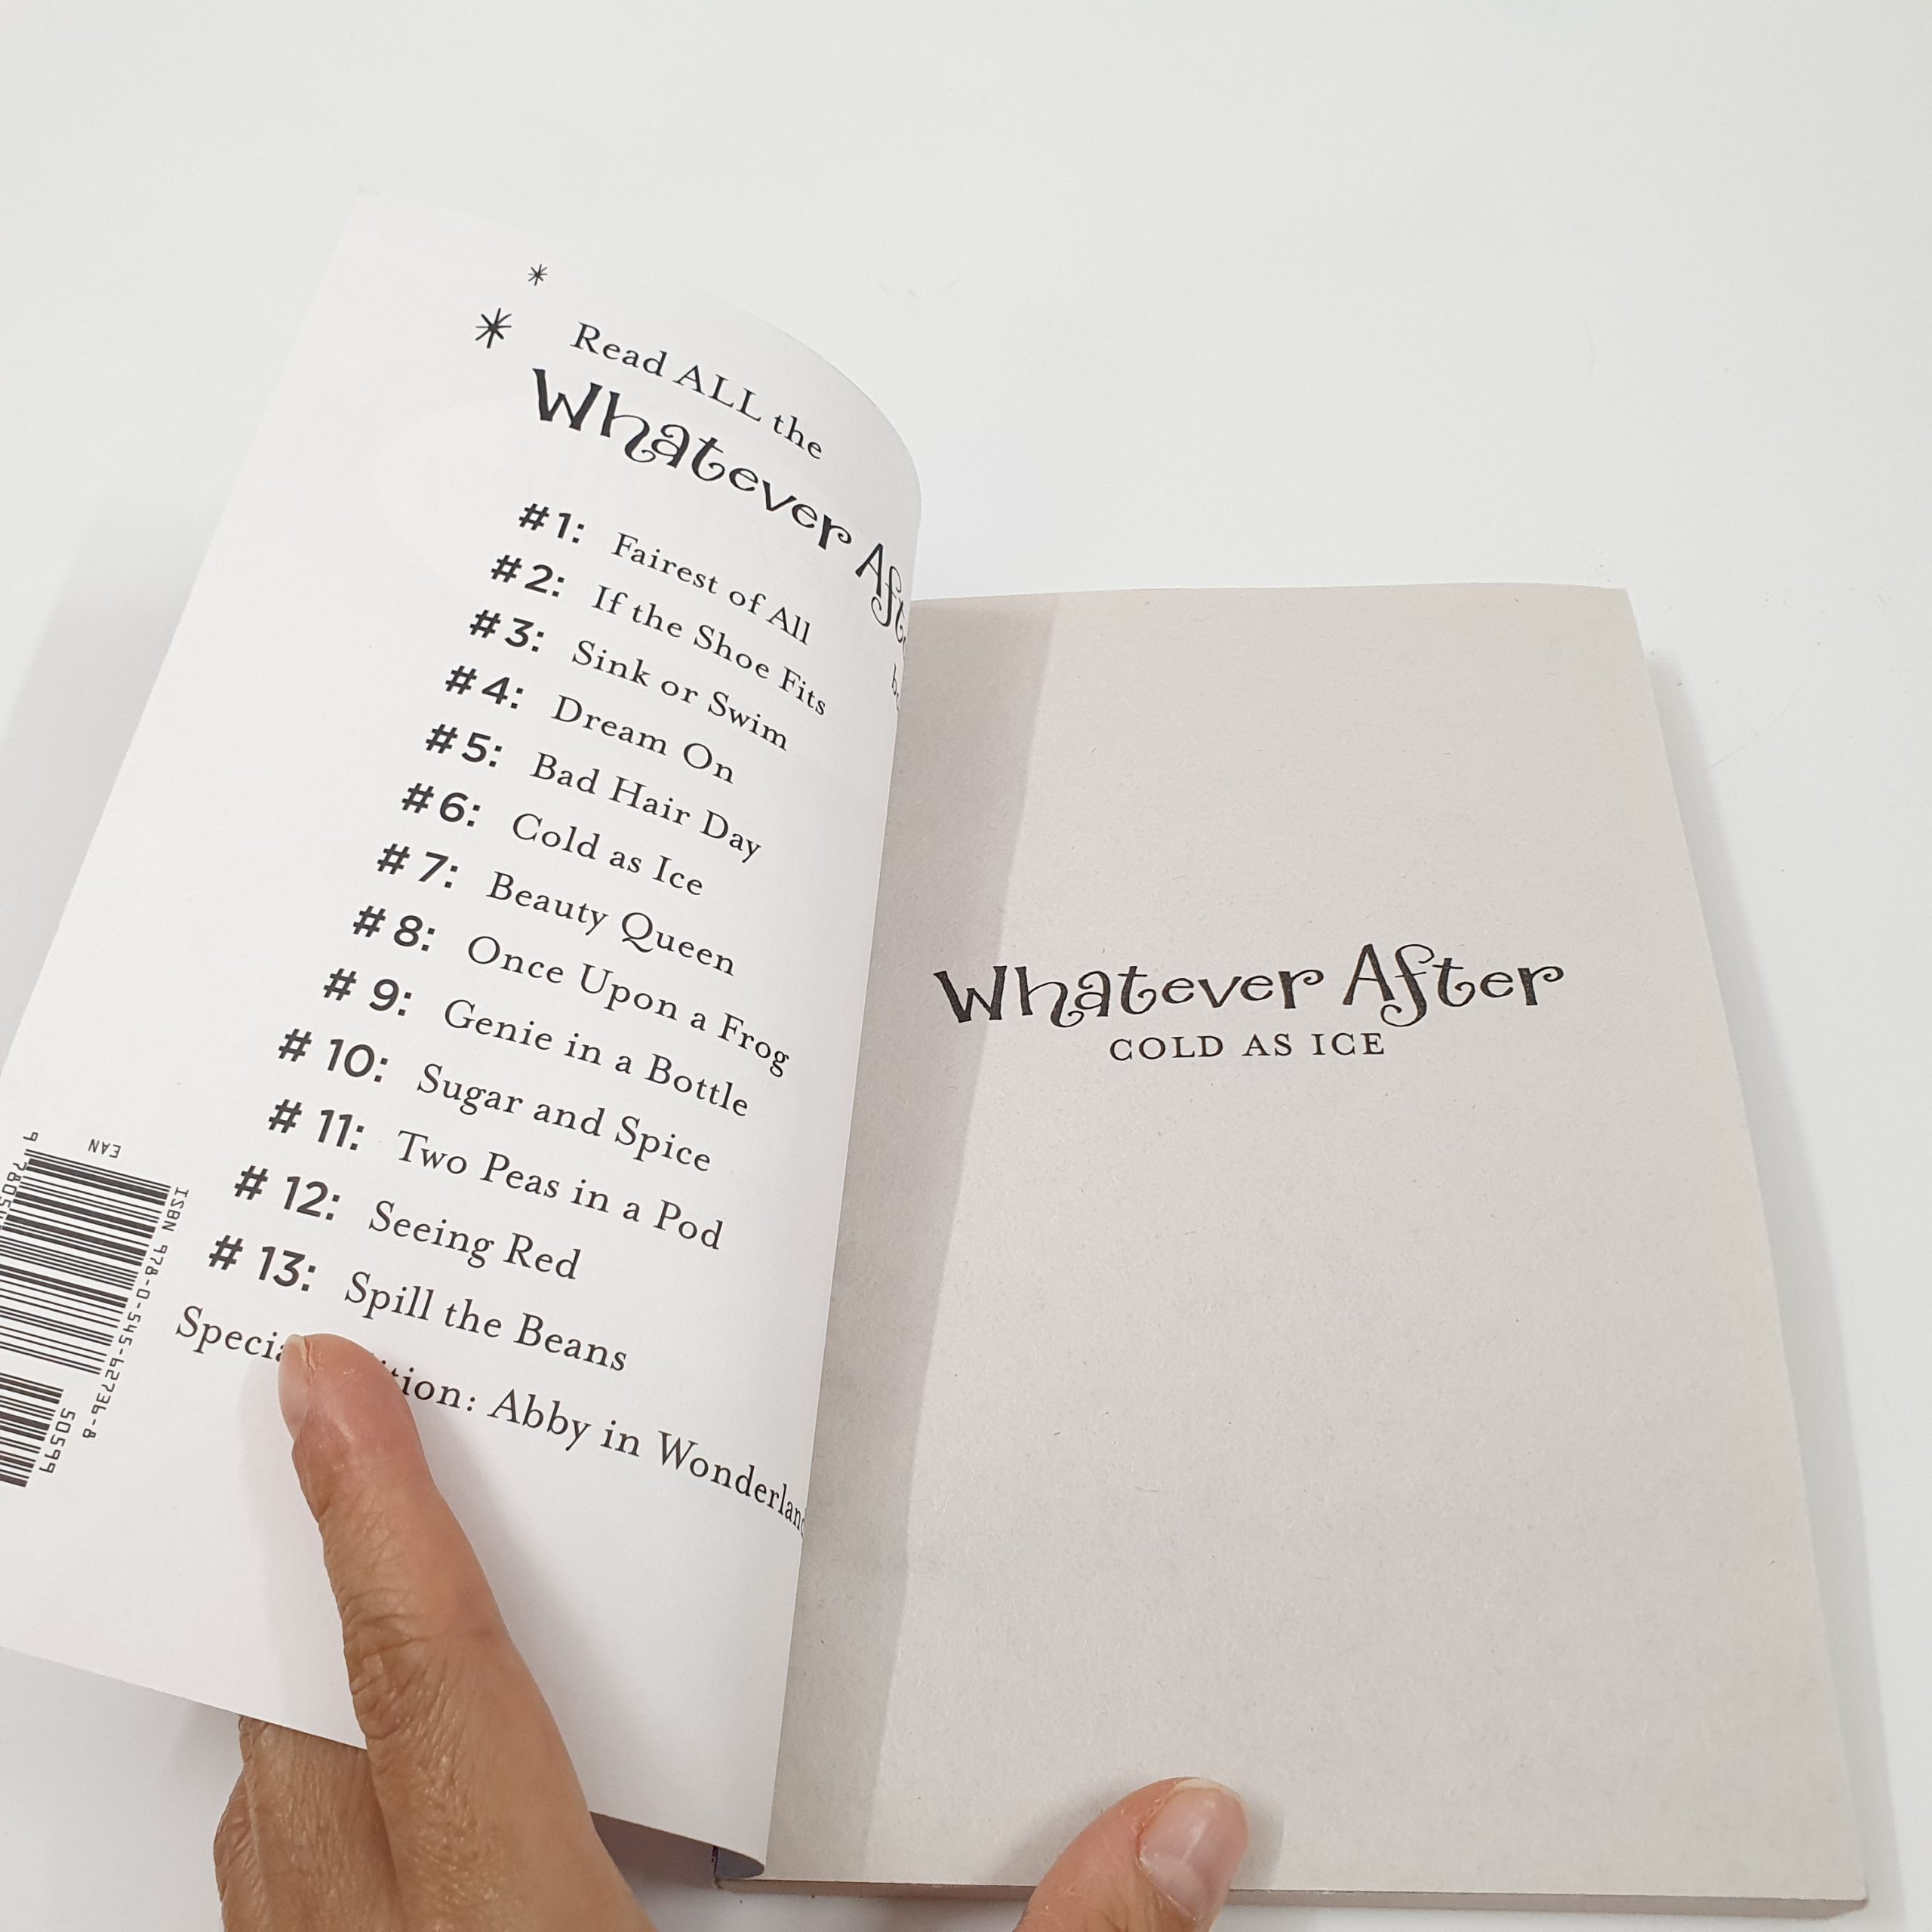 Read ALL the
Whatever
#1: Fairest of All
#2: If the Shoe Fits
#3: Sink or Swim
#4: Dream On
#5: Bad Hair Day
#6: Cold as Ice
#7: Beauty Queen
#8: Once Upon a Frog
#9: Genie in a Bottle
#10: Sugar and Spice
#11: Two Peas in a Pod
#12: Seeing Red
#13: Spill the Beans
Abby in
EAN
ISBN 978-0-545-62736-8
50599
Whatever After
COLD AS ICE